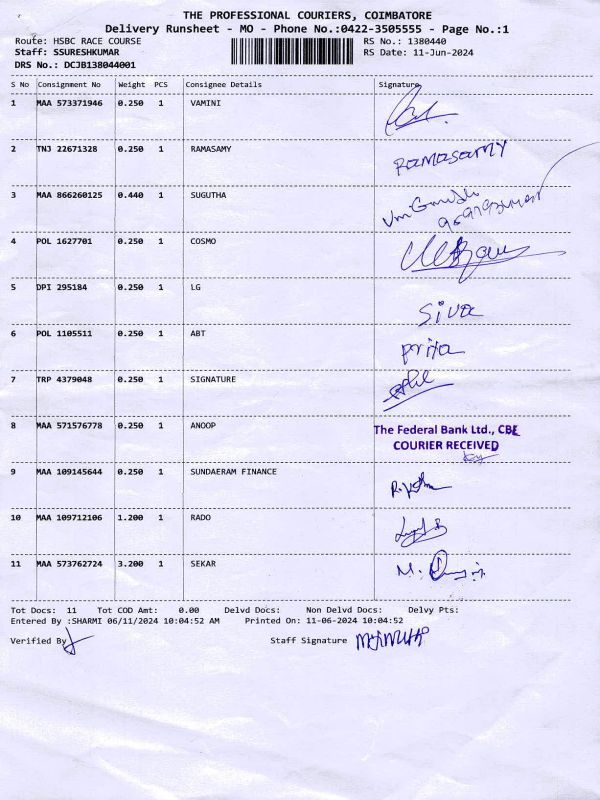 THE PROFESSIONAL COURIERS, COIMBATORE
Delivery Runsheet - MO - Phone No.:0422-3505555 - Page No.:1
Route: HSBC RACE COURSE
RS No.: 1380440
Staff: SSURESHKUMAR
RS Date: 11-Jun-2024
DRS No.: DCJB138044001
S No Consignment No Weight PCS Consignee Details Signature
1 MAA 573371946 0.250 1 VAMINI
2 TNJ 22671328 0.250 1 RAMASAMY RAMASAMY
3 MAA 866260125 0.440 1 SUGUTHA
4 POL 1627701 0.250 1 COSMO
5 DPI 295184 0.250 1 LG Siva
6 POL 1105511 0.250 1 ABT priya
7 TRP 4379048 0.250 1 SIGNATURE
8 MAA 571576778 0.250 1 ANOOP The Federal Bank Ltd., CBE
COURIER RECEIVED
9 MAA 109145644 0.250 1 SUNDAERAM FINANCE
10 MAA 109712106 1.200 1 RADO
11 MAA 573762724 3.200 1 SEKAR
Tot Docs: 11 Tot COD Amt: 0.00 Delvd Docs: Non Delvd Docs: Delvy Pts:
Entered By :SHARMI 06/11/2024 10:04:52 AM Printed On: 11-06-2024 10:04:52
Verified By Staff Signature